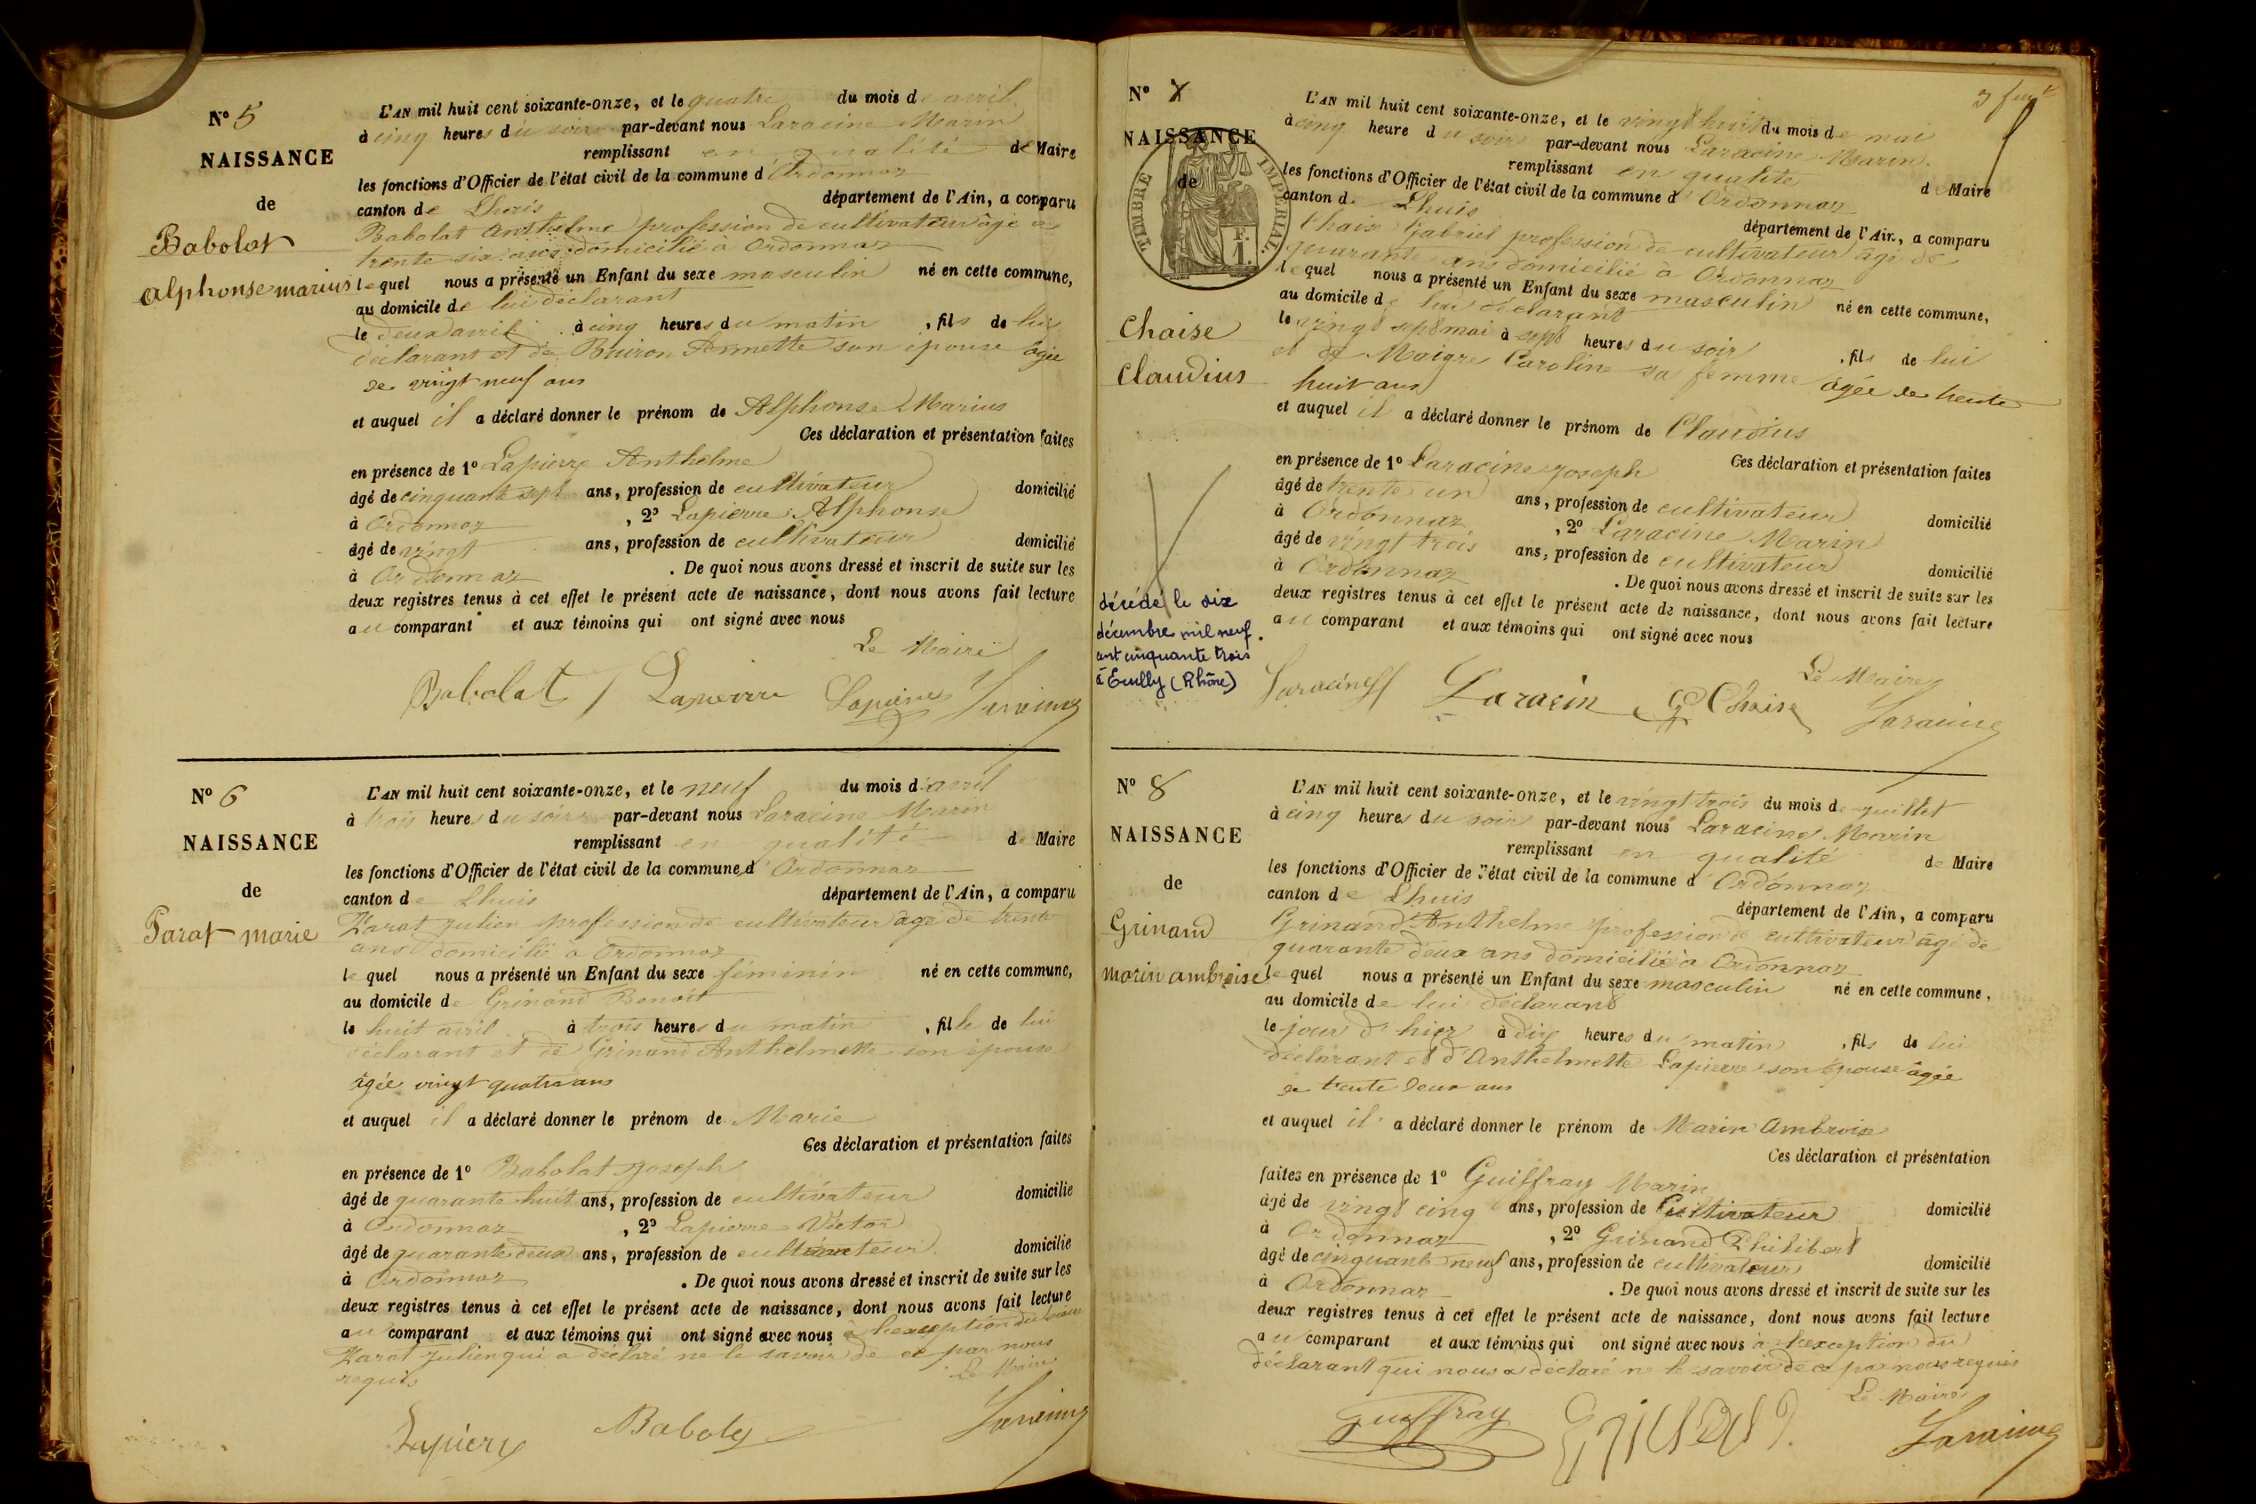 N° 5
NAISSANCE
de
Babolat
Alphonse marius
L'AN mil huit cent soixante-onze, et le quatre du mois d avril
à cinq heures du soir par-devant nous Laracine Marin
remplissant en qualité de Maire
les fonctions d'Officier de l'état civil de la commune d'Ordonnaz
canton de Lhuis département de l'Ain, a comparu
Babolat Anthelme profession de cultivateur âgé de
trente six ans domicilié à Ordonnaz
lequel nous a présenté un Enfant du sexe masculin né en cette commune,
au domicile de lui déclarant
le deux avril à cinq heures du matin, fils de lui
déclarant et de Buiron Annette son épouse âgée
de vingt neuf ans
et auquel il a déclaré donner le prénom de Alphonse Marius
Ces déclaration et présentation faites
en présence de 1° Lapierre Anthelme
âgé de cinquante sept ans, profession de cultivateur domicilié
à Ordonnaz, 2° Lapierre Alphonse
âgé de vingt ans, profession de cultivateur domicilié
à Ordonnaz. De quoi nous avons dressé et inscrit de suite sur les
deux registres tenus à cet effet le présent acte de naissance, dont nous avons fait lecture
au comparant et aux témoins qui ont signé avec nous
Le Maire
Babolat Lapierre Lapierre Laracine
N° 6
NAISSANCE
de
Parat marie
L'AN mil huit cent soixante-onze, et le neuf du mois d'avril
à trois heures du soir par-devant nous Laracine Marin
remplissant en qualité de Maire
les fonctions d'Officier de l'état civil de la commune d'Ordonnaz
canton de Lhuis département de l'Ain, a comparu
Parat Julien profession de cultivateur âgé de trente
ans domicilié à Ordonnaz
lequel nous a présenté un Enfant du sexe féminin né en cette commune,
au domicile de Grinand Benoit
le huit avril à trois heures du matin, fille de lui
déclarant et de Grinand Anthelmette son épouse
âgée vingt quatre ans
et auquel il a déclaré donner le prénom de Marie
Ces déclaration et présentation faites
en présence de 1° Babolat Joseph
âgé de quarante huit ans, profession de cultivateur domicilié
à Ordonnaz, 2° Lapierre Victor
âgé de quarante deux ans, profession de cultivateur domicilié
à Ordonnaz. De quoi nous avons dressé et inscrit de suite sur les
deux registres tenus à cet effet le présent acte de naissance, dont nous avons fait lecture
au comparant et aux témoins qui ont signé avec nous à l'exception du
Parat Julien qui a déclaré ne le savoir de ce par nous
requis Le Maire
Lapierre Babolat Laracine
N° 7
NAISSANCE
de
TIMBRE IMPÉRIAL
1 F.
Chaise
Claudius
décédé le six
décembre mil neuf
cent cinquante trois
à Ecully (Rhône)
L'AN mil huit cent soixante-onze, et le vingt huit du mois de mai
à cinq heure du soir par-devant nous Laracine Marin
remplissant en qualité de Maire
les fonctions d'Officier de l'état civil de la commune d'Ordonnaz
canton de Lhuis département de l'Ain, a comparu
Chaise Gabriel profession de cultivateur âgé de
quarante ans domicilié à Ordonnaz
lequel nous a présenté un Enfant du sexe masculin né en cette commune,
au domicile de lui déclarant
le vingt sept mai à sept heures du soir, fils de lui
et de Maigre Caroline sa femme âgée de trente
huit ans
et auquel il a déclaré donner le prénom de Claudius
Ces déclaration et présentation faites
en présence de 1° Laracine Joseph
âgé de trente un ans, profession de cultivateur domicilié
à Ordonnaz, 2° Laracine Marin
âgé de vingt trois ans, profession de cultivateur domicilié
à Ordonnaz. De quoi nous avons dressé et inscrit de suite sur les
deux registres tenus à cet effet le présent acte de naissance, dont nous avons fait lecture
au comparant et aux témoins qui ont signé avec nous
Le Maire
Laracine Laracin G Chaise Laracine
N° 8
NAISSANCE
de
Grinand
marin ambroise
L'AN mil huit cent soixante-onze, et le vingt trois du mois de juillet
à cinq heures du soir par-devant nous Laracine Marin
remplissant en qualité de Maire
les fonctions d'Officier de l'état civil de la commune d'Ordonnaz
canton de Lhuis département de l'Ain, a comparu
Grinand Anthelme profession de cultivateur âgé de
quarante deux ans domicilié à Ordonnaz
lequel nous a présenté un Enfant du sexe masculin né en cette commune,
au domicile de lui déclarant
le jour d'hier à dix heures du matin, fils de lui
déclarant et d'Anthelmette Lapierre son épouse âgée
de trente deux ans
et auquel il a déclaré donner le prénom de Marin Ambroise
Ces déclaration et présentation
faites en présence de 1° Guiffray Marin
âgé de vingt cinq ans, profession de Cultivateur domicilié
à Ordonnaz, 2° Grinand Philibert
âgé de cinquante neuf ans, profession de cultivateur domicilié
à Ordonnaz. De quoi nous avons dressé et inscrit de suite sur les
deux registres tenus à cet effet le présent acte de naissance, dont nous avons fait lecture
au comparant et aux témoins qui ont signé avec nous à l'exception du
déclarant qui nous a déclaré ne le savoir de ce par nous requis
Le Maire
Guiffray Grinand Laracine